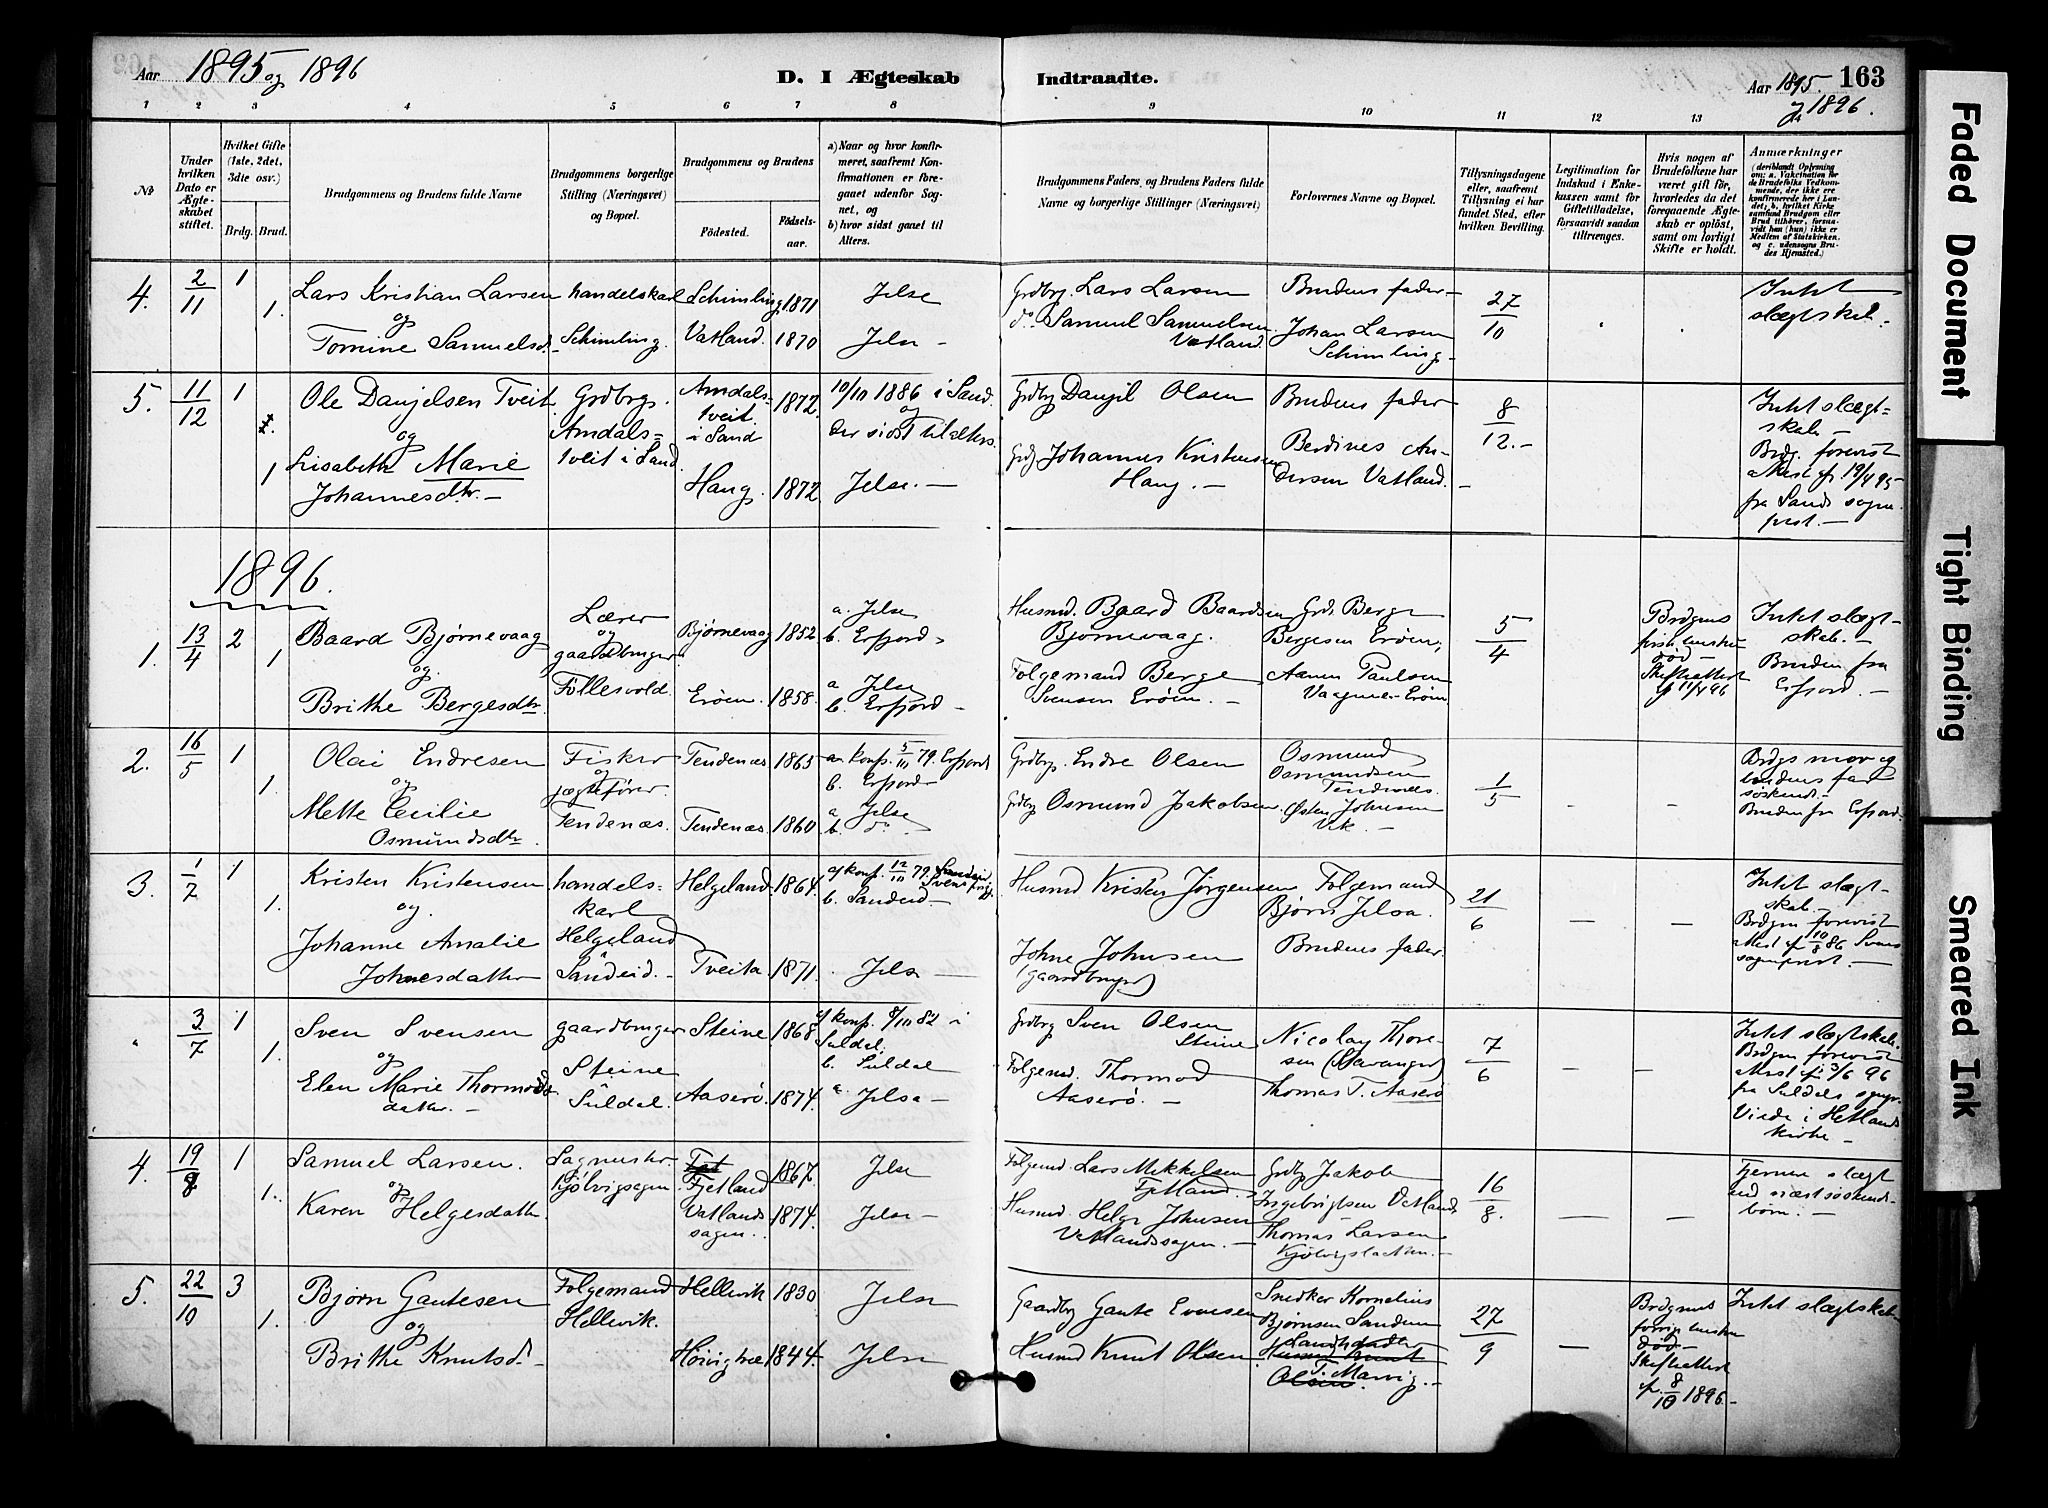 Aar 1895 og 1896
D. I Ægteskab Indtraadte.
Aar 1895. 163
og 1896.
1 2 3 4 5 6 7 8 9 10 11 12 13
No
Under hvilken Dato er Ægteskabet stiftet.
Hvilket Gifte (1ste, 2det, 3die osv.)
Brdg. Brud.
Brudgommens og Brudens fulde Navne
Brudgommens borgerlige Stilling (Næringsvei) og Bopæl.
Brudgommens og Brudens
Födested. Födselsaar.
a) Naar og hvor konfirmeret, saafremt Konfirmationen er foregaaet udenfor Sognet, og
b) hvor sidst gaaet til Alters.
Brudgommens Faders, og Brudens Faders fulde Navne og borgerlige Stillinger (Næringsvei)
Forlovernes Navne og Bopæl.
Tillysningsdagene eller, saafremt Tillysning ei har fundet Sted, efter hvilken Bevilling.
Legitimation for Indskud i Enkekassen samt for Giftetilladelse, forsaavidt saadan tiltrænges.
Hvis nogen af Brudefolkene har været gift før, hvorledes da det foregaaende Ægteskab er oplöst, samt om lovligt Skifte er holdt.
Anmærkninger
(deriblandt Oplysning om: a. Vakcination for de Brudefolks Vedkommende, der ikke ere konfirmerede her i Landet, b. hvilket Kirkesamfund Brudgom eller Brud tilhører, forsaavidt han (hun) ikke er Medlem af Statskirken, og c. udensogns Brudes Hjemsted.)
4. 2/11 1 1.
Lars Kristian Larsen
og
Tomine Samuelsd.
handelskarl
Schimling.
Schimling 1871
Vatland. 1870
Jelse
Jelse –
Grdbrg. Lars Larsen
do Samuel Samuelsen
Vatland.
Brudens fader –
Johan Larsen
Schimling –
27/10
Intet
slægtskab.
5. 11/12 1 1
Ole Danjelsen Tveit
og
Lisabeth Marie
Johannesdtr. –
Grdbrgr.
Amdals=
tveit i Sand.
Amdals=
tveit
i Sand 1872.
Haug. 1872
10/10 1886 i Sand.
og
der sidst til alters.
Jelse. –
Grdbrg Danjel Olsen
Grdbrg Johannes Kristensen
Haug. –
Brudens fader
Berdines An-
dersen Vatland. –
8/12. –
Intet slægt-
skab –
Brdg. forevist
Attest af 19/4 95
fra Sands sogne-
prest. –
1896.
1. 13/4 2 1
Baard Bjørnevaag
og
Brithe Bergesdtr.
Lærer
og
gaardbruger
Föllesvold.
Bjørnevaag 1852
Erøen. 1858.
a. Jelse
b. Erfjord –
a Jelse
b. Erfjord –
Husmd. Baard Baardsen
Bjørnevaag.
Folgemand Berge
Svensen Erøen. –
Grdb. Berge
Bergesen Erøen,
Aanen Paulsen
Vaagene – Erøen
5/4
Brdgms
første hustru
død –
Skifteattest
af 11/4 96
Intet slægt-
skab. –
Bruden fra
Erfjord. –
2. 16/5 1 1.
Olai Endresen
og
Mette Cecilie
Osmundsdtr.
Fisker
og
jægtefører.
Tendenæs.
Tendenæs 1865
Tendenæs. 1860
a. konf. 5/10 79. Erfjord
b. Erfjord –
a. Jelse
b. do
Grdbrgr. Endre Olsen
Grdbrg Osmund Jakobsen
Osmund
Osmundsen
Tendenæs.
Østen Johnsen
Vik. –
1/5 – –
Brdgs mor og
brudens far
søskende. –
Bruden fra Erfjord –
3. 1/7 1 1.
Kristen Kristensen
og.
Johanne Amalie
Johnesdatter
handels-
karl
Helgeland
Sandeid. –
Helgeland 1864.
Tveita 1871.
a/ konf. 12/10 79.
b. Sandeid –
Jelse –
Husmd Kristen Jørgensen
Johne Johnsen
(gaardbruger)
Folgemand
Bjørn Jelsa.
Brudens fader.
21/6 – –
Intet slægt-
skab. –
Brdgm forevist
Attest af 10/8 86
sogneprest. –
" 3/7 1 1.
Sven Svensen
og
Elen Marie Thormods
datter. –
gaardbruger
Steine
Suldal.
Steine 1868
Aaserø. 1874.
a/ konf. 8/10 82 i
Suldal.
b. Suldal
a. Jelsa –
Grdbrg Sven Olsen
Steine
Folgemd. Thormod
Aaserø. –
Nicolay Thore-
sen (Stavanger)
Thomas T. Aaserø
7/6 – –
Intet slægtskab.
Brdgm forevist
Attest af 3/6 96
fra Suldals
Viede i Hetlands
kirke –
4. 19/9 1 1.
Samuel Larsen.
og
Karen Helgesdatter.
Sagmester.
Kjølvigsagen.
Fjetland 1867.
Vatlands
sagen. 1874.
Jelse
Jelse –
Folgemd. Lars Mikkelsen
Fjetland.
Husmd Helge Johnsen
Vatlandssagen. –
Grdbrg Jakob
Ingebrigtsen Vatland
Thomas Larsen
16/8. – –
Fjernere slægt
end næstsøskende-
børn. –
5. 22/10 3 1.
Bjørn Gautesen
og
Brithe Knutsd. –
Folgemand
Hellevik.
Hellevik 1830
1844.
Jelse
Jelse
Gaardbrg Gaute Evensen
Husmd Knut Olsen.
Snedker Kornelius
Bjørnsen Sandem
Landhandler
Husmd Knut
Olsen.
T. Marvig. –
27/9 –
Brdgms
forrige hustru
død –
Skifteattest
af. 8/10 1896 –
Intet slægtskab
Faded Document
Tight Binding
Smeared Ink